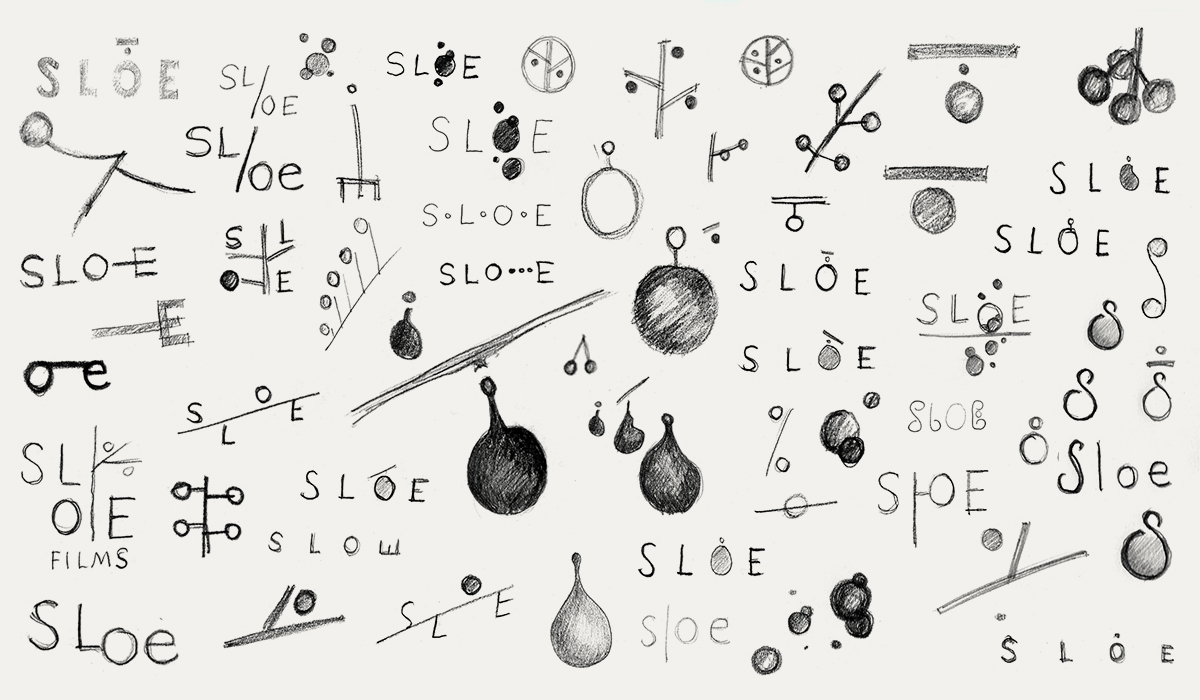 SLOE
SL/OE
SLOE
SL/oe
SLOE
S·L·O·E
SLOE
SLOE
SLO-E
SLE
SLO•••E
SLOE
SLOE
E
SLOE
oe
SLOE
SLOE
SLOE
SLOE
FILMS
Sloe
SLOE
SLOE
SLOE
SLOE
SLoe
SLE
sloe
SLOE